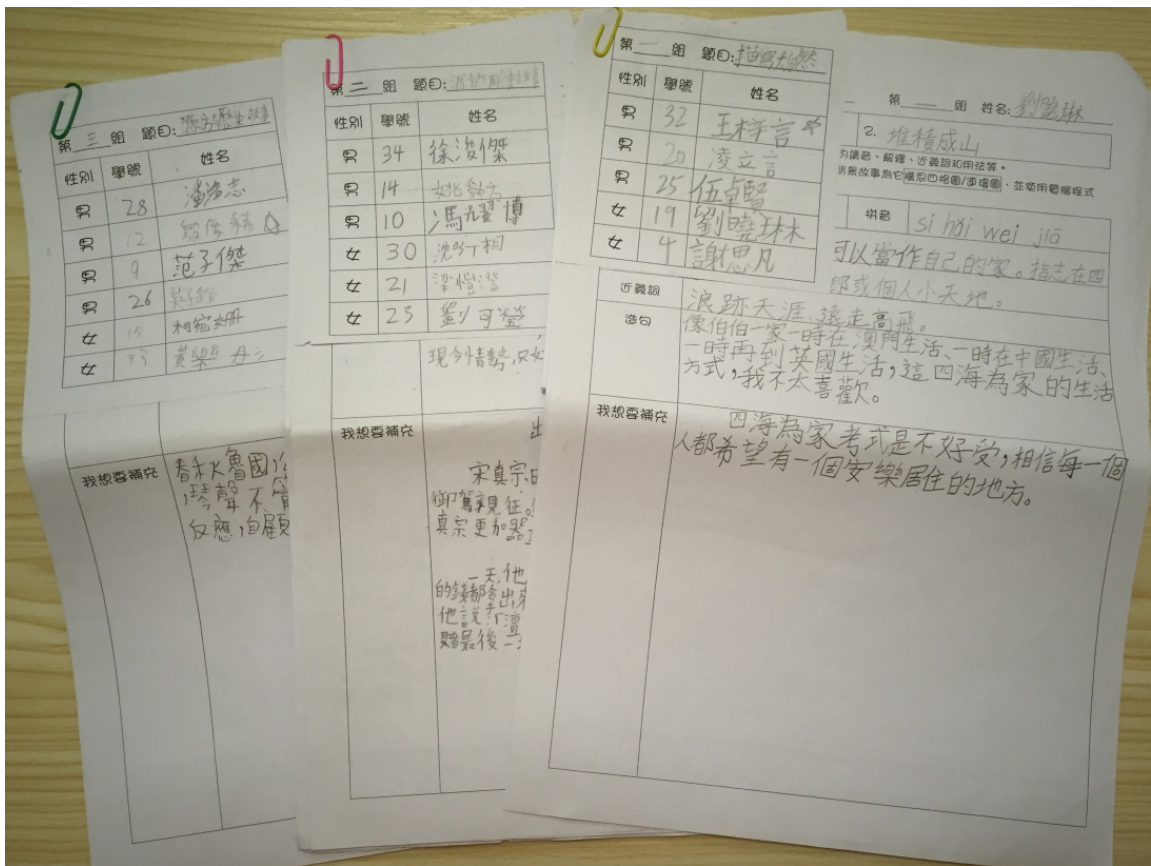 第三組 題目:
性別 學號 姓名
男 28 潘浩志
男 12
男 9 范子傑
男 26
女 15 柯宛姍
女 33 黃樂丹
我想要補充
春秋魯國,公
,琴聲不
反應,自顧
第二組 題目:
性別 學號 姓名
男 34 徐浚傑
男 14
男 10 馮耀博
女 30 沈昕桐
女 21 梁愷澄
女 23 劉可瑩
現今情勢,只好
我想要補充
出
宋真宗時
御駕親征。
真宗更加器
一天,他
的錢都拿出來
他說:「
賭最後一
第一組 題目:描寫大自然
性別 學號 姓名
男 32 王梓言
男 20 凌立言
男 25 伍卓賢
女 19 劉曉琳
女 4 謝思凡
第一組 姓名:劉曉琳
2. 堆積成山
的讀音、解釋、近義詞和用法等。
情景故事為它構思四格圖/連環圖,並使用電腦程式
拼音 sì hǎi wéi jiā
可以當作自己的家。指志在四
郎或個人小天地。
近義詞 浪跡天涯、遠走高飛。
造句 像伯伯一家一時在澳門生活、一時在中國生活、
一時再到英國生活,這四海為家的生活
方式,我不太喜歡。
我想要補充 四海為家考式是不好受,相信每一個
人都希望有一個安樂居住的地方。